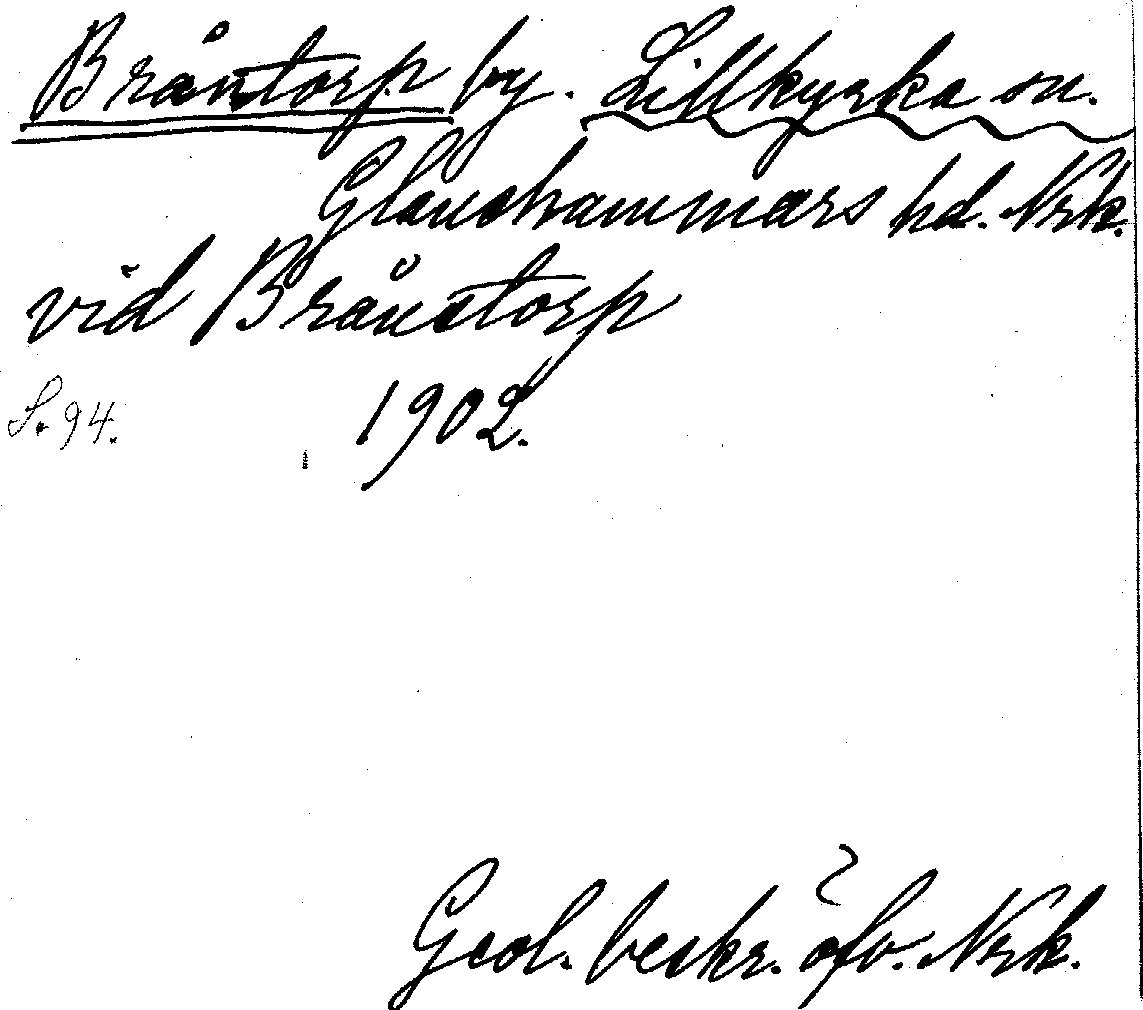 Bråntorp by. Lillkyrka sn.
Glanshammars hd. Nrk.
vid Brånstorp
S. 94. 1902.
Geol. beskr. öfv. Nrk.